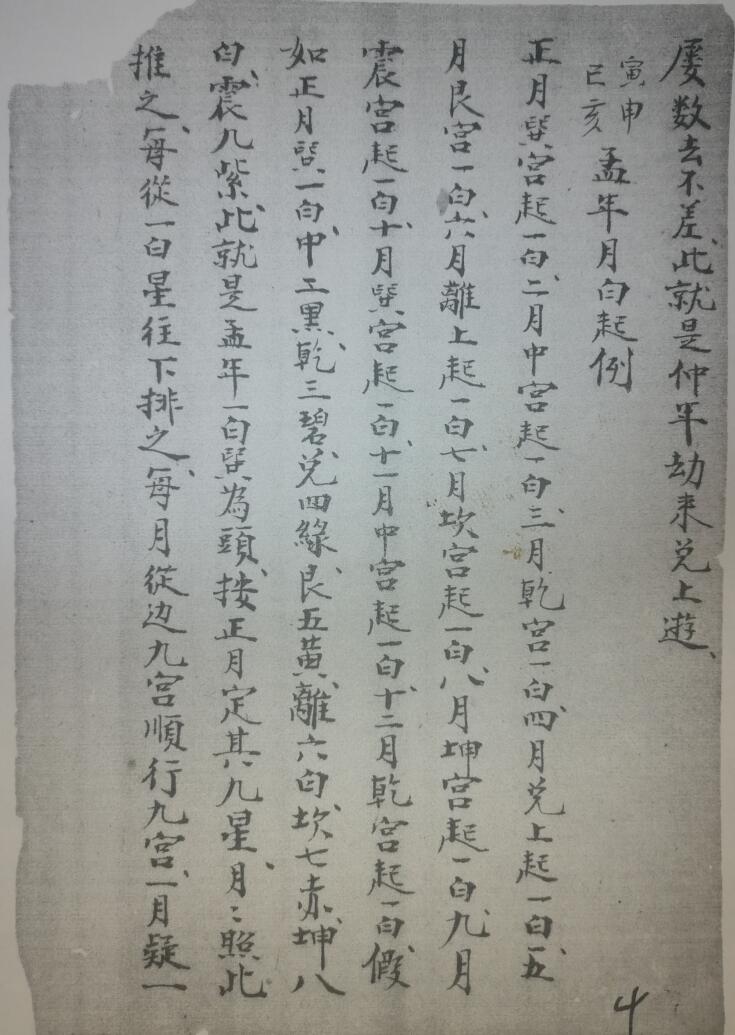 屡数去不差、此就是仲年劫来兑上遊、
寅申
巳亥
孟年月白起例
正月巽宫起一白、二月中宫起一白、三月乾宫一白、四月兑上起一白、五
月艮宫一白、六月離上起一白、七月坎宫起一白、八月坤宫起一白、九月
震宫起一白、十月巽宫起一白、十一月中宫起一白、十二月乾宫起一白、假
如正月巽一白、中二黑、乾三碧、兑四綠、艮五黃、離六白、坎七赤、坤八
白、震九紫、此就是孟年一白巽為頭、按正月定其九星、月〻照此
推之、每從一白星往下排之、每月從边九宫順行九宫、一月疑一
4